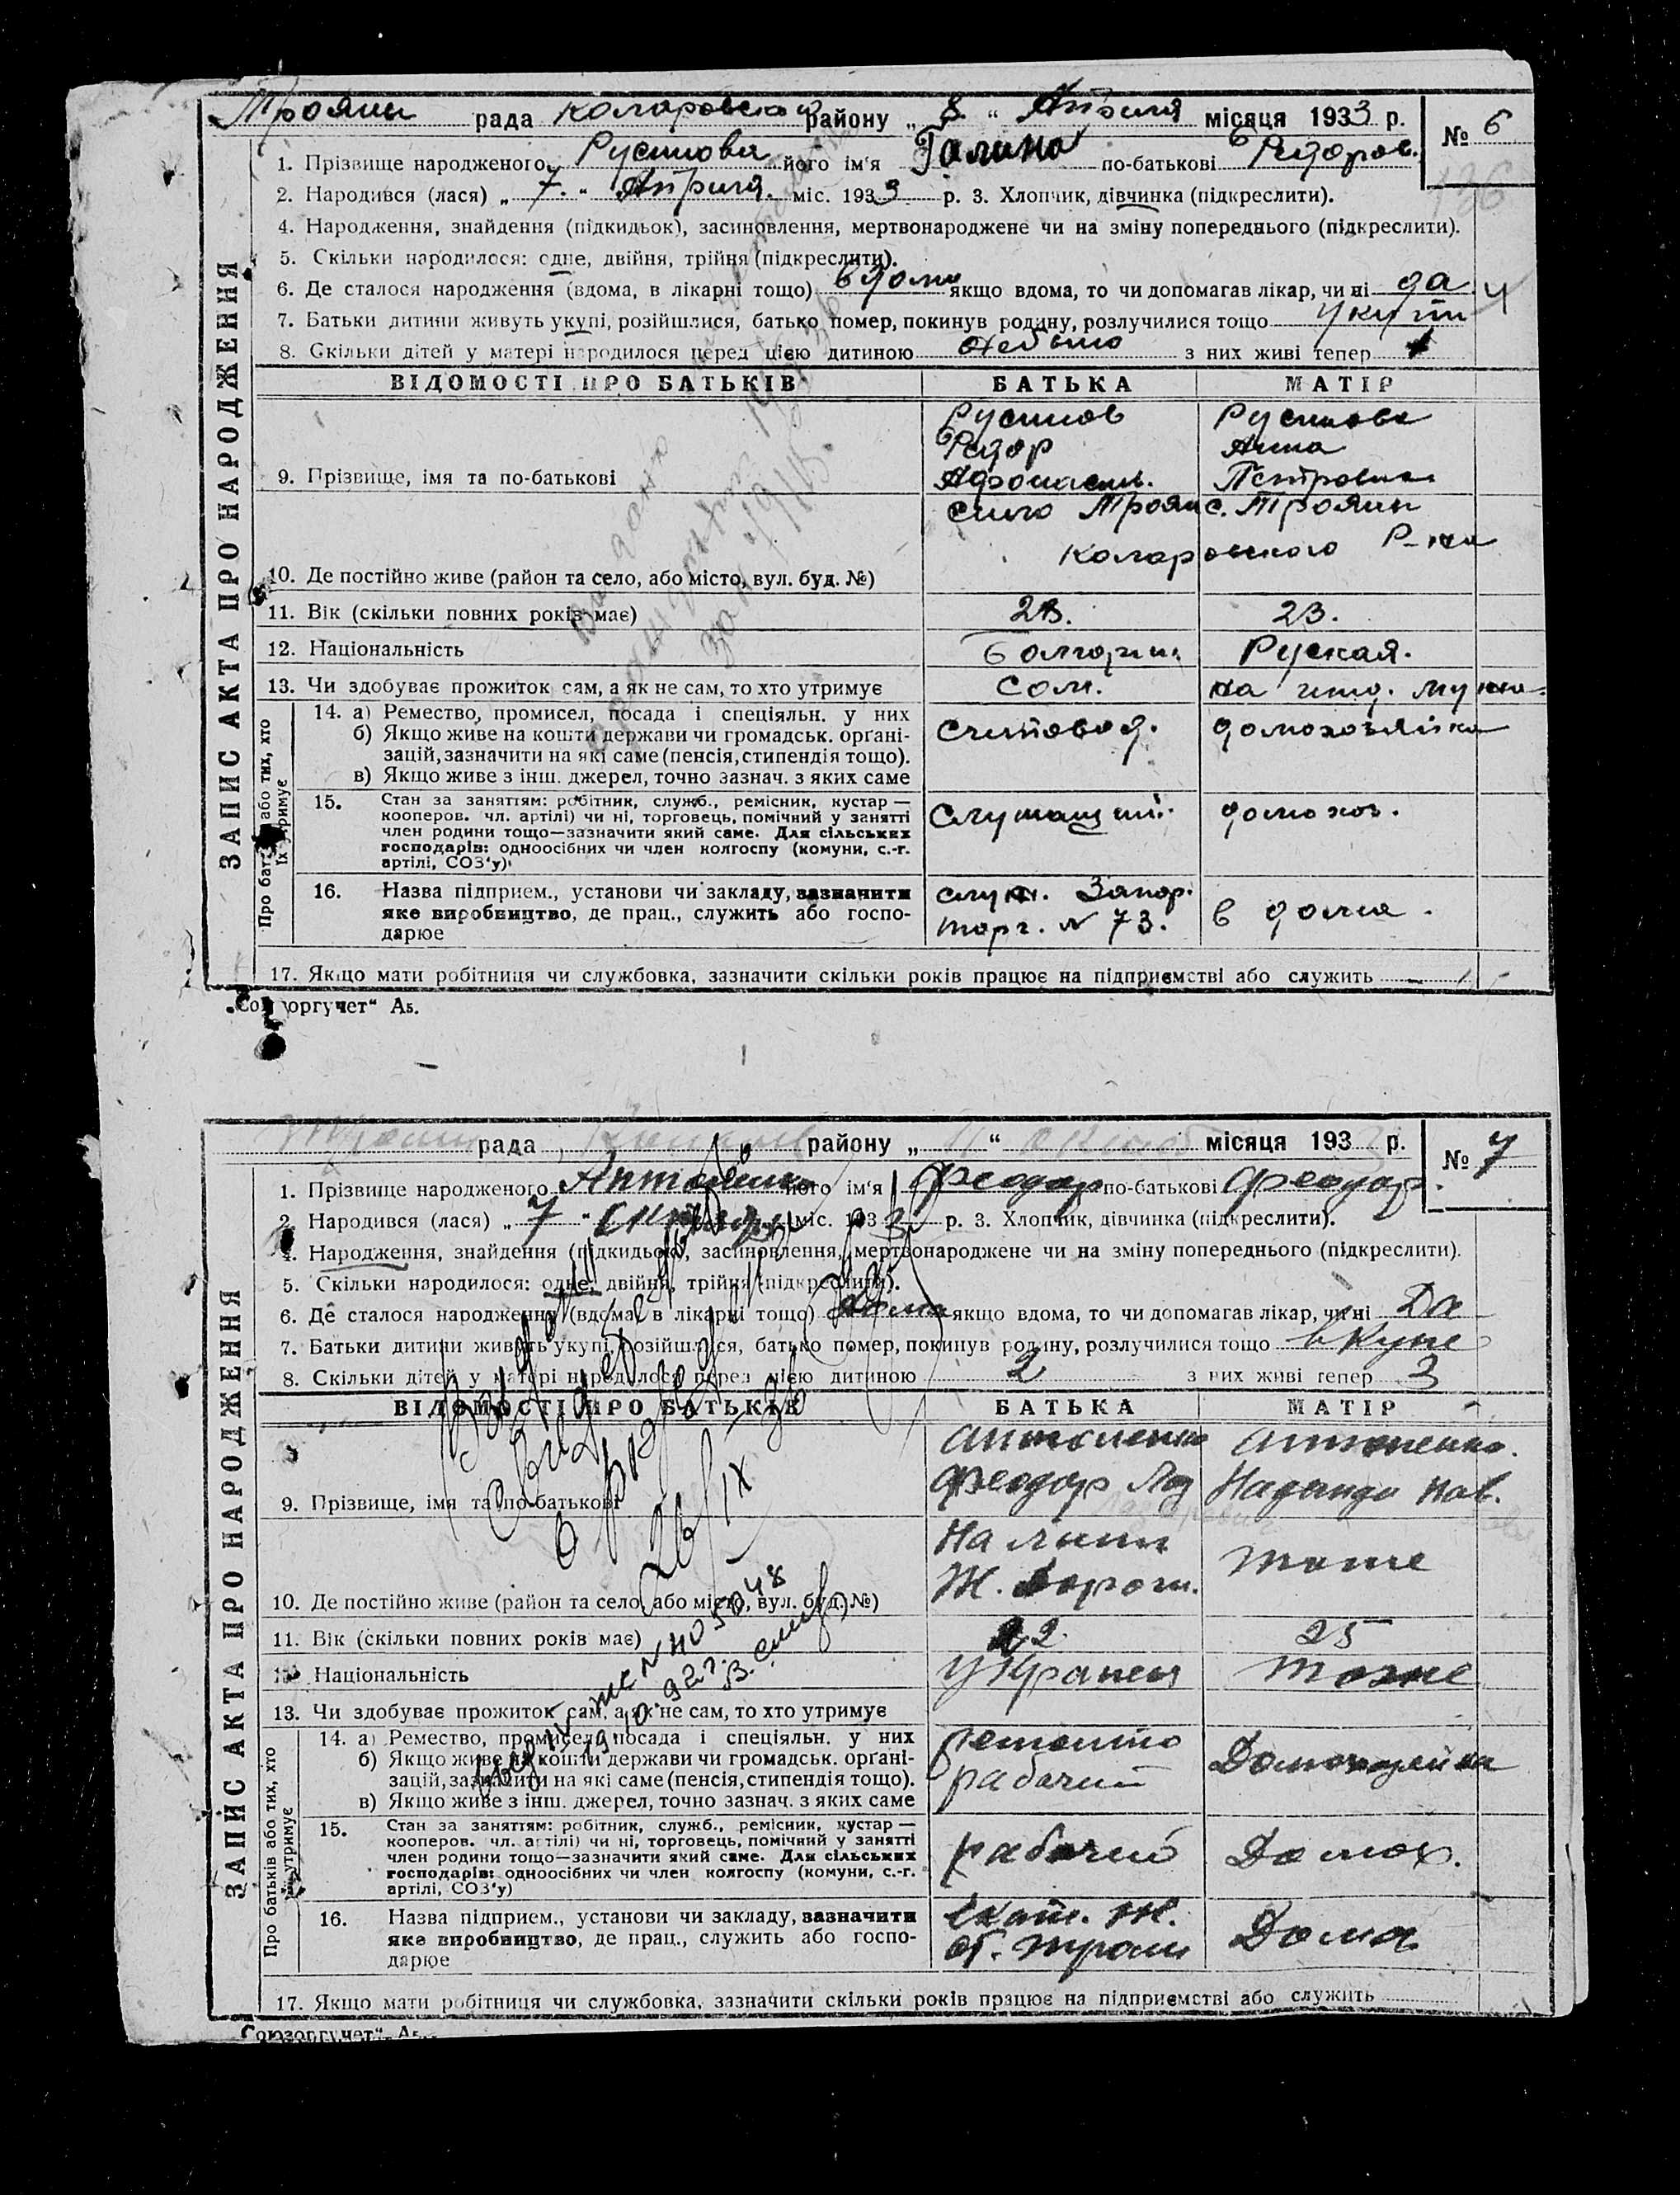 Трояны рада Коларовской району „ 8 “ Апреля місяця 1933 р. № 6
1. Прізвище народженого Русинова його ім'я Галина по-батькові Федоров.
2. Народився (лася) „ 7. “ Апреля. міс. 1933 р. 3. Хлопчик, дівчинка (підкреслити).
136
4. Народження, знайдення (підкидьок), засиновлення, мертвонароджене чи на зміну попереднього (підкреслити).
5. Скільки народилося: одне, двійня, трійня (підкреслити).
6. Де сталося народження (вдома, в лікарні тощо) в доме якщо вдома, то чи допомагав лікар, чи ні да
7. Батьки дитини живуть укупі, розійшлися, батько помер, покинув родину, розлучилися тощо укупи
8. Скільки дітей у матері народилося перед цією дитиною не было з них живі тепер
ВІДОМОСТІ ПРО БАТЬКІВ БАТЬКА МАТІР
Русинов Русинова
Федор Анна
9. Прізвище, імя та по-батькові Афонасів. Петровна
село Троян с. Трояны
Коларовского Р-на
10. Де постійно живе (район та село, або місто, вул. буд. №)
11. Вік (скільки повних років має) 23. 23.
12. Національність Болгарин. Руская.
13. Чи здобуває прожиток сам, а як не сам, то хто утримує Сам. на ижд. мужа.
14. а) Ремество, промисел, посада і спеціяльн. у них счетовод. домохозяйка
б) Якщо живе на кошти держави чи громадськ. орґані-
зацій, зазначити на які саме (пенсія, стипендія тощо).
в) Якщо живе з інш. джерел, точно зазнач. з яких саме
15. Стан за заняттям: робітник, служб., ремісник, кустар — Служащий. домохоз.
кооперов. чл. артілі) чи ні, торговець, помічний у занятті
член родини тощо—зазначити який саме. Для сільських
господарів: одноосібних чи член колгоспу (комуни, с.-г.
артілі, СОЗ'у)
16. Назва підприєм., установи чи закладу, зазначити служ. Запор.
яке виробництво, де прац., служить або госпо- торг. № 73. в доме.
дарює
17. Якщо мати робітниця чи службовка, зазначити скільки років працює на підприємстві або служить
ЗАПИС АКТА ПРО НАРОДЖЕННЯ
Про батьків або тих, хто
їх утримує
„Союзоргучет“ А5.
рада району „ “ місяця 193 р. № 7
1. Прізвище народженого Антоненко його ім'я Феодор по-батькові Феодор.
2. Народився (лася) „ 7 “ міс. 1933 р. 3. Хлопчик, дівчинка (підкреслити).
4. Народження, знайдення (підкидьок), засиновлення, мертвонароджене чи на зміну попереднього (підкреслити).
5. Скільки народилося: одне, двійня, трійня (підкреслити).
6. Де сталося народження (вдома, в лікарні тощо) дома якщо вдома, то чи допомагав лікар, чи ні Да
7. Батьки дитини живуть укупі, розійшлися, батько помер, покинув родину, розлучилися тощо вкупе
8. Скільки дітей у матері народилося перед цією дитиною 2 з них живі тепер 3
ВІДОМОСТІ ПРО БАТЬКІВ БАТЬКА МАТІР
Антоненко Антоненко.
9. Прізвище, імя та по-батькові Феодор Надежда Пав.
На линии тоже
Ж. дорож.
10. Де постійно живе (район та село, або місто, вул. буд. №)
11. Вік (скільки повних років має) 22 25
12. Національність Украенец тоже
13. Чи здобуває прожиток сам, а як не сам, то хто утримує
14. а) Ремество, промисел, посада і спеціяльн. у них ремонтно Домохозяйка
б) Якщо живе на кошти держави чи громадськ. орґані- рабочий
зацій, зазначити на які саме (пенсія, стипендія тощо).
в) Якщо живе з інш. джерел, точно зазнач. з яких саме
15. Стан за заняттям: робітник, служб., ремісник, кустар — рабочий Домох.
кооперов. чл. артілі) чи ні, торговець, помічний у занятті
член родини тощо—зазначити який саме. Для сільських
господарів: одноосібних чи член колгоспу (комуни, с.-г.
артілі, СОЗ'у)
16. Назва підприєм., установи чи закладу, зазначити Екат. Ж.
яке виробництво, де прац., служить або госпо- ст. Трояни Дома
дарює
17. Якщо мати робітниця чи службовка, зазначити скільки років працює на підприємстві або служить
ЗАПИС АКТА ПРО НАРОДЖЕННЯ
Про батьків або тих, хто
їх утримує
Союзоргучет“ А5.